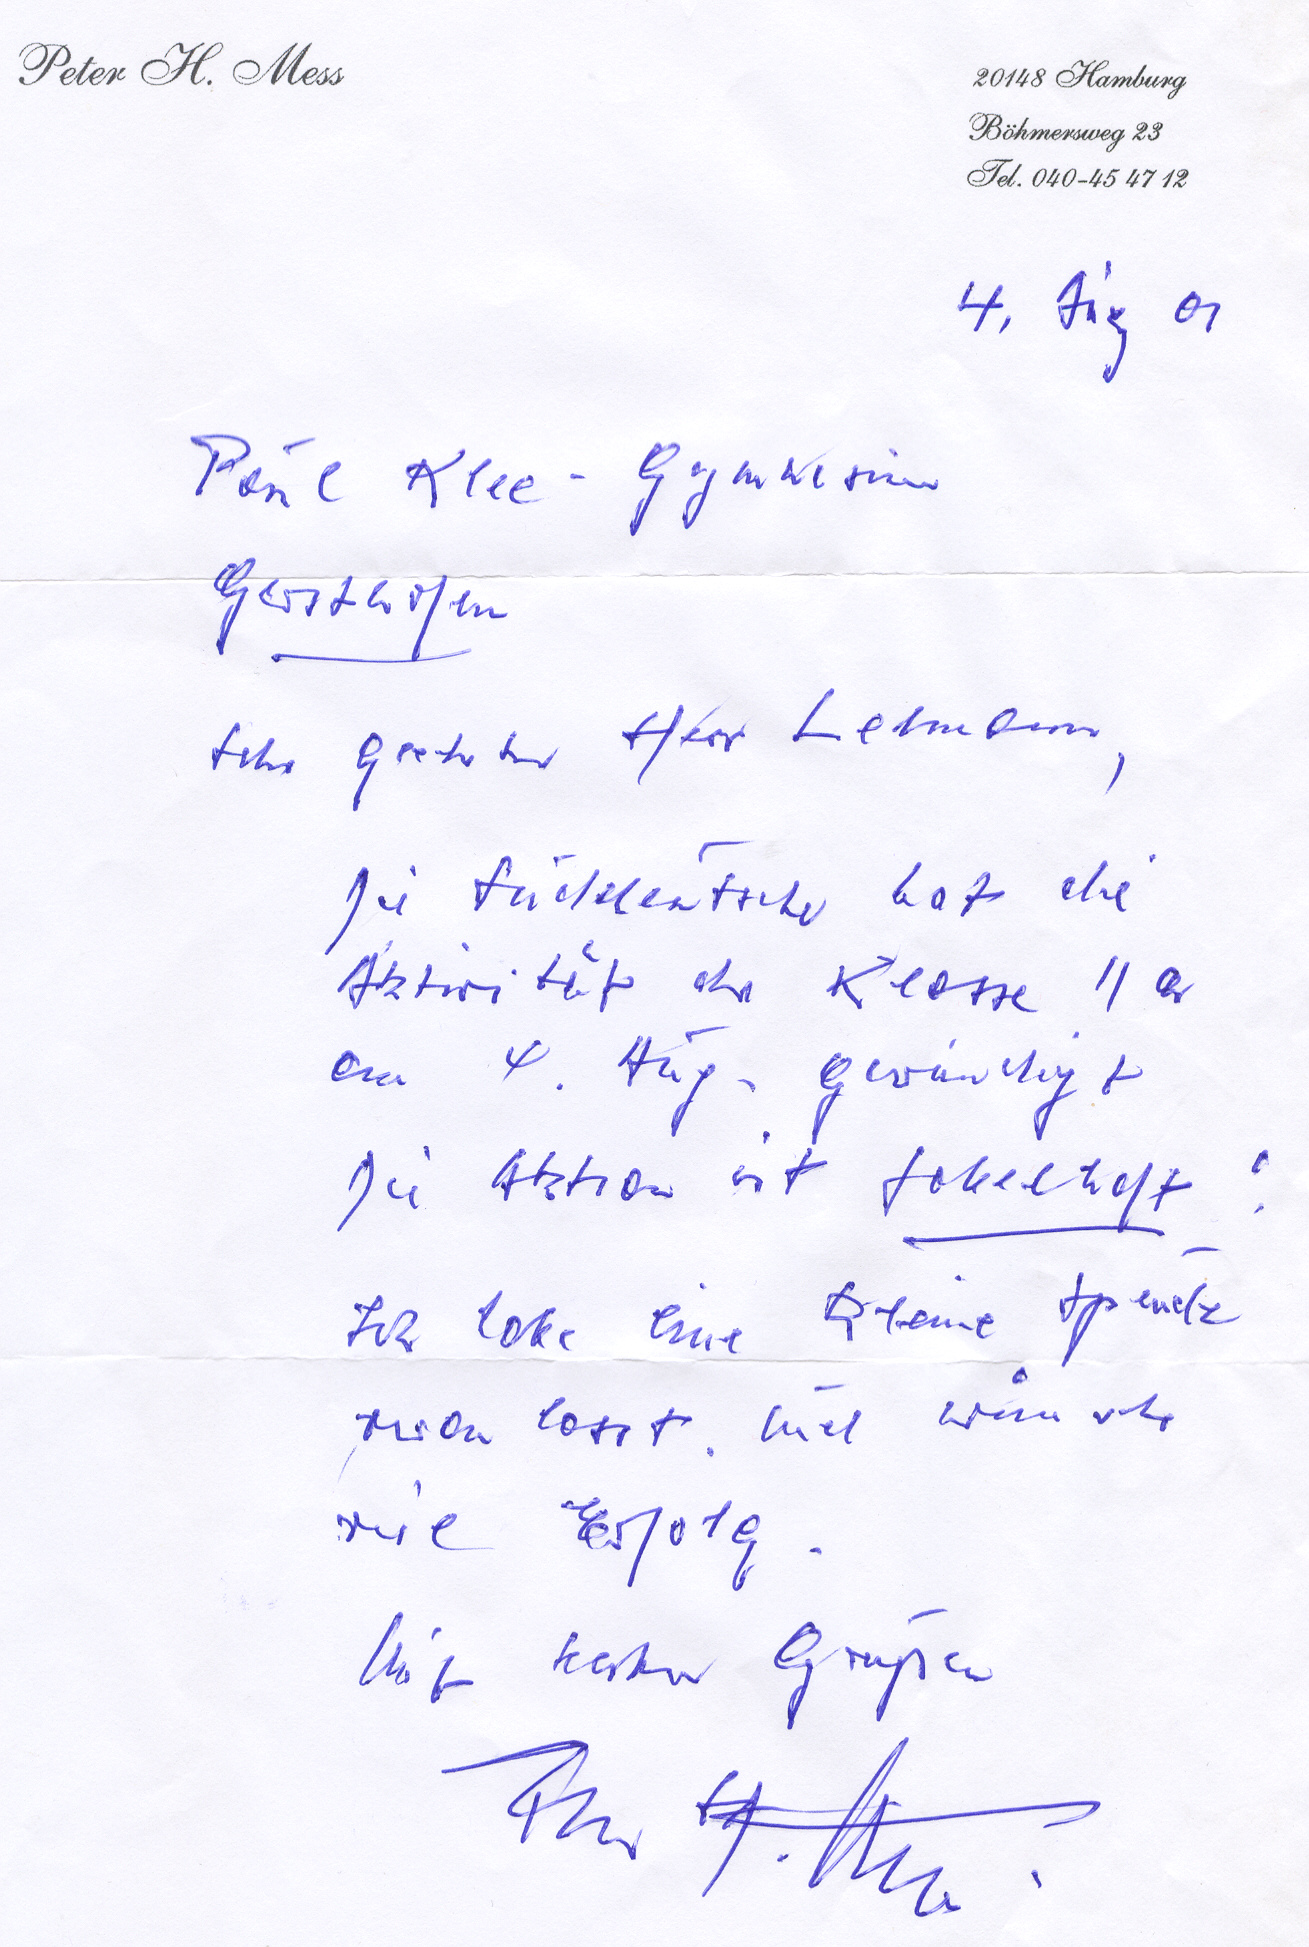 Peter H. Mess
20148 Hamburg
Böhmersweg 23
Tel. 040-45 47 12
4. Aug 01
Paul Klee-Gymnasium
Gersthofen
Sehr geehrter Herr Lehmann,
Die Süddeutsche hat die
Aktivität der Klasse 11a
am 4. Aug. gewürdigt
Die Aktion ist fabelhaft!
Ich habe eine kleine Spende
veranlasst. Und wünsche
viel Erfolg.
Mit besten Grüßen
Peter H. Mess